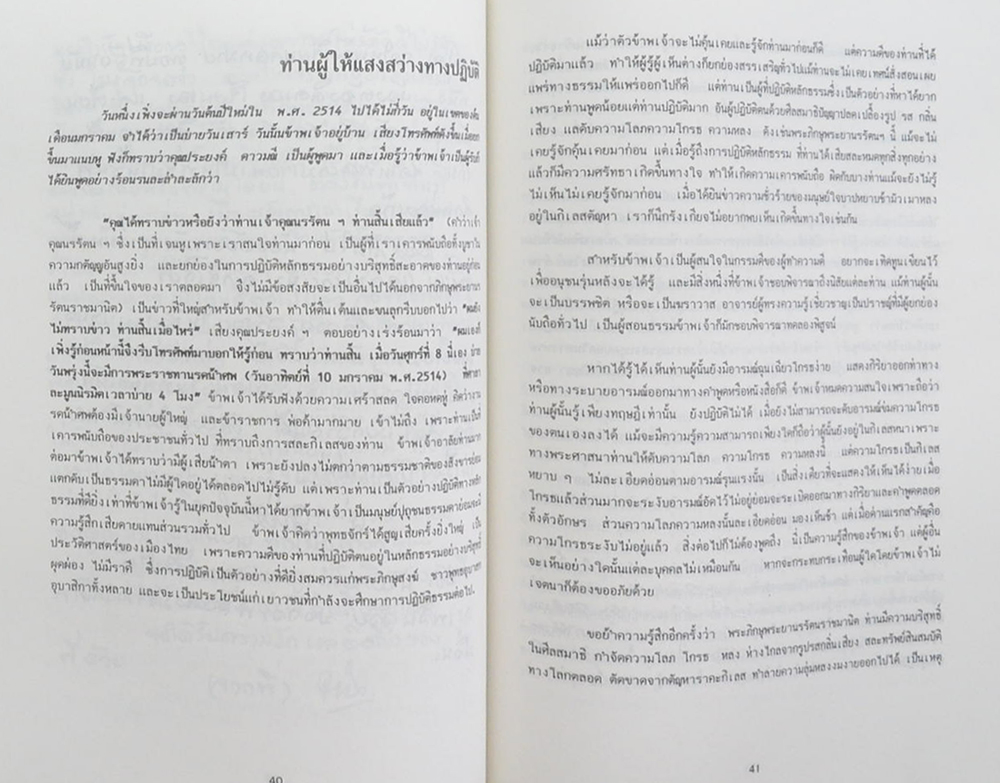 ท่านผู้ให้แสงสว่างทางปฏิบัติ
วันหนึ่งเพิ่งจะผ่านวันต้นปีใหม่ใน พ.ศ. 2514 ไปได้ไม่กี่วัน อยู่ในเขตของต้น
เดือนมกราคม จำได้ว่าเป็นบ่ายวันเสาร์ วันนั้นข้าพเจ้าอยู่บ้าน เสียงโทรศัพท์ดังขึ้นเมื่อยก
ขึ้นมาแนบหู ฟังก็ทราบว่าคุณประยงค์ ดาวมณี เป็นผู้พูดมา และเมื่อรู้ว่าข้าพเจ้าเป็นผู้รับก็
ได้ยินพูดอย่างร้อนรนละล่ำละลักว่า
"คุณได้ทราบข่าวหรือยังว่าท่านเจ้าคุณนรรัตน ฯ ท่านสิ้นเสียแล้ว" (คำว่าเจ้า
คุณนรรัตน ฯ ซึ่งเป็นที่เจนหูเพราะเราสนใจท่านมาก่อน เป็นผู้ที่เราเคารพนับถือทั้งบูชาใน
ความกตัญญูอันสูงยิ่ง และยกย่องในการปฏิบัติหลักธรรมอย่างบริสุทธิ์สะอาดของท่านอยู่ก่อน
แล้ว เป็นที่ขึ้นใจของเราตลอดมา จึงไม่มีข้อสงสัยจะเป็นอื่นไปได้นอกจากภิกษุพระยานร
รัตนราชมานิต) เป็นข่าวที่ใหญ่สำหรับข้าพเจ้า ทำให้ตื่นเต้นและขนลุกรีบบอกไปว่า "ผมยัง
ไม่ทราบข่าว ท่านสิ้นเมื่อไหร่" เสียงคุณประยงค์ ฯ ตอบอย่างเร่งร้อนมาว่า "ผมเองก็
เพิ่งรู้ก่อนหน้านี้จึงรีบโทรศัพท์มาบอกให้รู้ก่อน ทราบว่าท่านสิ้น เมื่อวันศุกร์ที่ 8 นี่เอง บ่าย
วันพรุ่งนี้จะมีการพระราชทานรดน้ำศพ (วันอาทิตย์ที่ 10 มกราคม พ.ศ.2514) ที่ศาลา
ละมูนนิรมิตเวลาบ่าย 4 โมง" ข้าพเจ้าได้รับฟังด้วยความเศร้าสลด ใจคอหดหู่ คิดว่างาน
รดน้ำศพต้องมีเจ้านายผู้ใหญ่ และข้าราชการ พ่อค้ามากมาย เข้าไม่ถึง เพราะท่านเป็นที่
เคารพนับถือของประชาชนทั่วไป ที่ทราบถึงการสละกิเลสของท่าน ข้าพเจ้าอาลัยท่านมาก
ต่อมาข้าพเจ้าได้ทราบว่ามีผู้เสียน้ำตา เพราะยังปลงไม่ตกว่าตามธรรมชาติของสังขารย่อม
แตกดับเป็นธรรมดาไม่มีผู้ใดอยู่ได้ตลอดไปไม่รู้ดับ แต่เพราะท่านเป็นตัวอย่างปฏิบัติทางหลัก
ธรรมที่ดียิ่งเท่าที่ข้าพเจ้ารู้ในยุคปัจจุบันนี้หาได้ยากข้าพเจ้าเป็นมนุษย์ปุถุชนธรรมดาย่อมจะมี
ความรู้สึกเสียดายแทนส่วนรวมทั่วไป ข้าพเจ้าคิดว่าพุทธจักร์ได้สูญเสียครั้งยิ่งใหญ่ เป็น
ประวัติศาสตร์ของเมืองไทย เพราะความดีของท่านที่ปฏิบัติตนอยู่ในหลักธรรมอย่างบริสุทธิ์
ผุดผ่อง ไม่มีราคี ซึ่งการปฏิบัติเป็นตัวอย่างที่ดียิ่งสมควรแก่พระภิกษุสงฆ์ ชาวพุทธอุบาสก
อุบาสิกาทั้งหลาย และจะเป็นประโยชน์แก่เยาวชนที่กำลังจะศึกษาการปฏิบัติธรรมต่อไป.
40
แม้ว่าตัวข้าพเจ้าจะไม่คุ้นเคยและรู้จักท่านมาก่อนก็ดี แต่ความดีของท่านที่ได้
ปฏิบัติมาแล้ว ทำให้ผู้รู้ผู้เห็นต่างก็ยกย่องสรรเสริญทั่วไปแม้ท่านจะไม่เคยเทศน์สั่งสอนเผย
แพร่ทางธรรมให้แพร่ออกไปก็ดี แต่ท่านเป็นผู้ที่ปฏิบัติหลักธรรมซึ่งเป็นตัวอย่างที่หาได้ยาก
เพราะท่านพูดน้อยแต่ท่านปฏิบัติมาก อันผู้ปฏิบัติตนด้วยศีลสมาธิปัญญาปลดเปลื้องรูป รส กลิ่น
เสียง และดับความโลภความโกรธ ความหลง ดังเช่นพระภิกษุพระยานรรัตนฯ นี้ แม้จะไม่
เคยรู้จักคุ้นเคยมาก่อน แต่เมื่อรู้ถึงการปฏิบัติหลักธรรม ที่ท่านได้เสียสละหมดทุกสิ่งทุกอย่าง
แล้วก็มีความศรัทธาเกิดขึ้นทางใจ ทำให้เกิดความเคารพนับถือ ผิดกับบางท่านแม้จะยังไม่รู้
ไม่เห็นไม่เคยรู้จักมาก่อน เมื่อได้ยินข่าวความชั่วร้ายของมนุษย์ใจบาปหยาบช้ามัวเมาหลง
อยู่ในกิเลสตัณหา เราก็นึกรังเกียจไม่อยากพบเห็นเกิดขึ้นทางใจเช่นกัน
สำหรับข้าพเจ้าเป็นผู้สนใจในกรรมดีของผู้ทำความดี อยากจะเทิดทูนเขียนไว้
เพื่ออนุชนรุ่นหลังจะได้รู้ และมีสิ่งหนึ่งที่ข้าพเจ้าชอบพิจารณาถึงนิสัยแต่ละท่าน แม้ท่านผู้นั้น
จะเป็นบรรพชิต หรือจะเป็นฆราวาส อาจารย์ผู้ทรงความรู้เชี่ยวชาญเป็นปราชญ์ที่มีผู้ยกย่อง
นับถือทั่วไป เป็นผู้สอนธรรมข้าพเจ้าก็มักชอบพิจารณาทดลองพิสูจน์
หากได้รู้ได้เห็นท่านผู้นั้นยังมีอารมณ์ฉุนเฉียวโกรธง่าย แสดงกิริยาออกท่าทาง
หรือทางระบายอารมณ์ออกมาทางคำพูดหรือหนังสือก็ดี ข้าพเจ้าหมดความสนใจเพราะถือว่า
ท่านผู้นั้นรู้เพียงทฤษฎีเท่านั้น ยังปฏิบัติไม่ได้ เมื่อยังไม่สามารถจะดับอารมณ์ข่มความโกรธ
ของตนเองลงได้ แม้จะมีความรู้ความสามารถเพียงใดก็ถือว่าผู้นั้นยังอยู่ในกิเลสหนาเพราะ
ทางพระศาสนาท่านให้ดับความโลภ ความโกรธ ความหลงนี้ แต่ความโกรธเป็นกิเลส
หยาบ ๆ ไม่ละเอียดอ่อนตามอารมณ์รุนแรงนั้น เป็นสิ่งเดียวที่จะแสดงให้เห็นได้ง่ายเมื่อ
โกรธแล้วส่วนมากจะระงับอารมณ์อัดไว้ไม่อยู่ย่อมจะระเบิดออกมาทางกิริยาและคำพูดตลอด
ทั้งตัวอักษร ส่วนความโลภความหลงนั้นละเอียดอ่อน มองเห็นช้า แต่เมื่อด่านแรกสำคัญคือ
ความโกรธระงับไม่อยู่แล้ว สิ่งต่อไปก็ไม่ต้องพูดถึง นี่เป็นความรู้สึกของข้าพเจ้า แต่ผู้อื่น
จะเห็นอย่างใดนั้นแต่ละบุคคลไม่เหมือนกัน หากจะกระทบกระเทือนผู้ใดโดยข้าพเจ้าไม่
เจตนาก็ต้องขออภัยด้วย
ขอย้ำความรู้สึกอีกครั้งว่า พระภิกษุพระยานรรัตนราชมานิต ท่านมีความบริสุทธิ์
ในศีลสมาธิ กำจัดความโลภ โกรธ หลง ห่างไกลจากรูปรสกลิ่นเสียง สละทรัพย์สินสมบัติ
ทางโลกตลอด ตัดขาดจากตัณหาราคะกิเลส ทำลายความลุ่มหลงงมงายออกไปได้ เป็นเหตุ
41